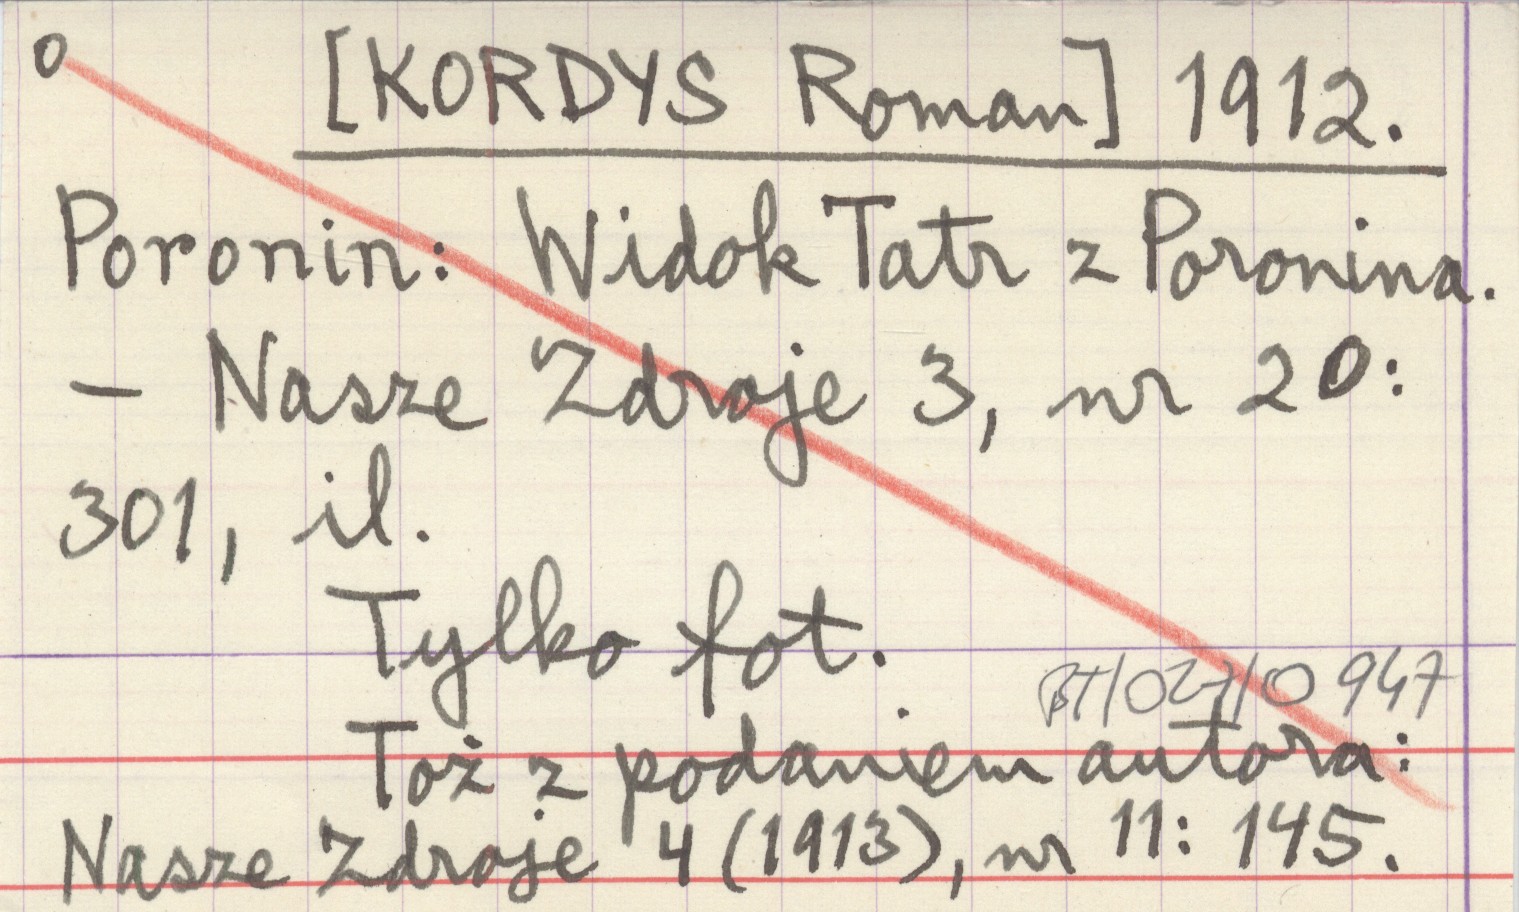 O
[KORDYS Roman] 1912.
Poronin: Widok Tatr z Poronina.
– Nasze Zdroje 3, nr 20:
301, il.
Tylko fot.
BT/027/0947
Toż z podaniem autora:
Nasze Zdroje 4 (1913), nr 11: 145.